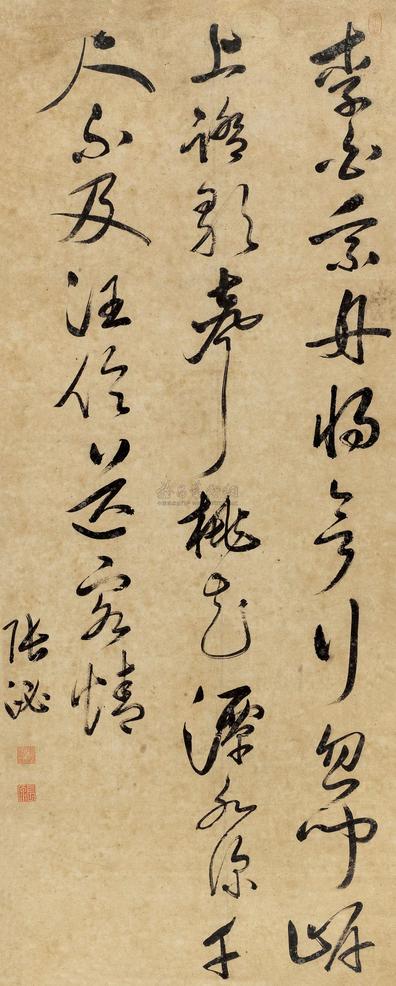 李白乘舟將欲行忽聞岸
上踏歌聲桃花潭水深千
尺不及汪倫送客情
張